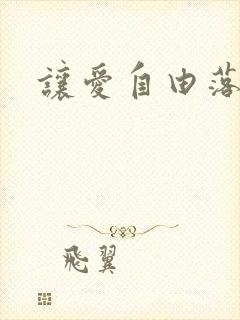 讓愛自由落
飛翼